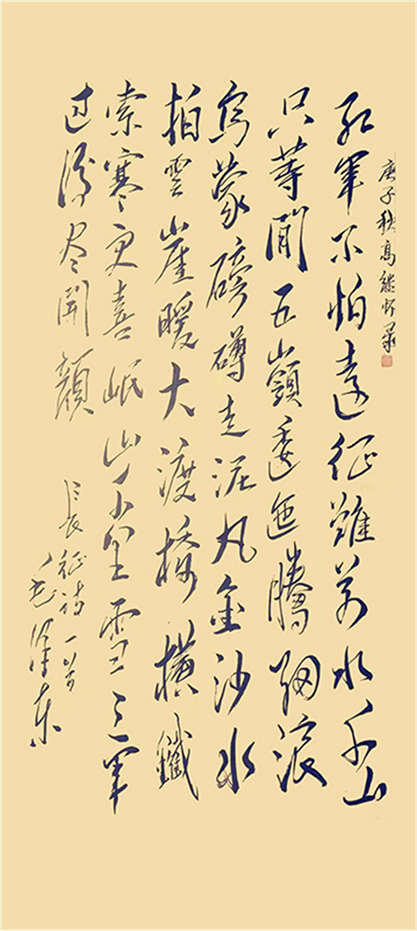 庚子秋高
紅軍不怕遠征難万水千山
只等閒五嶺逶迤騰細浪
烏蒙磅礴走泥丸金沙水
拍雲崖暖大渡橋橫鐵
索寒更喜岷山千里雪三軍
过後尽開顏
長征詩一首
毛澤東